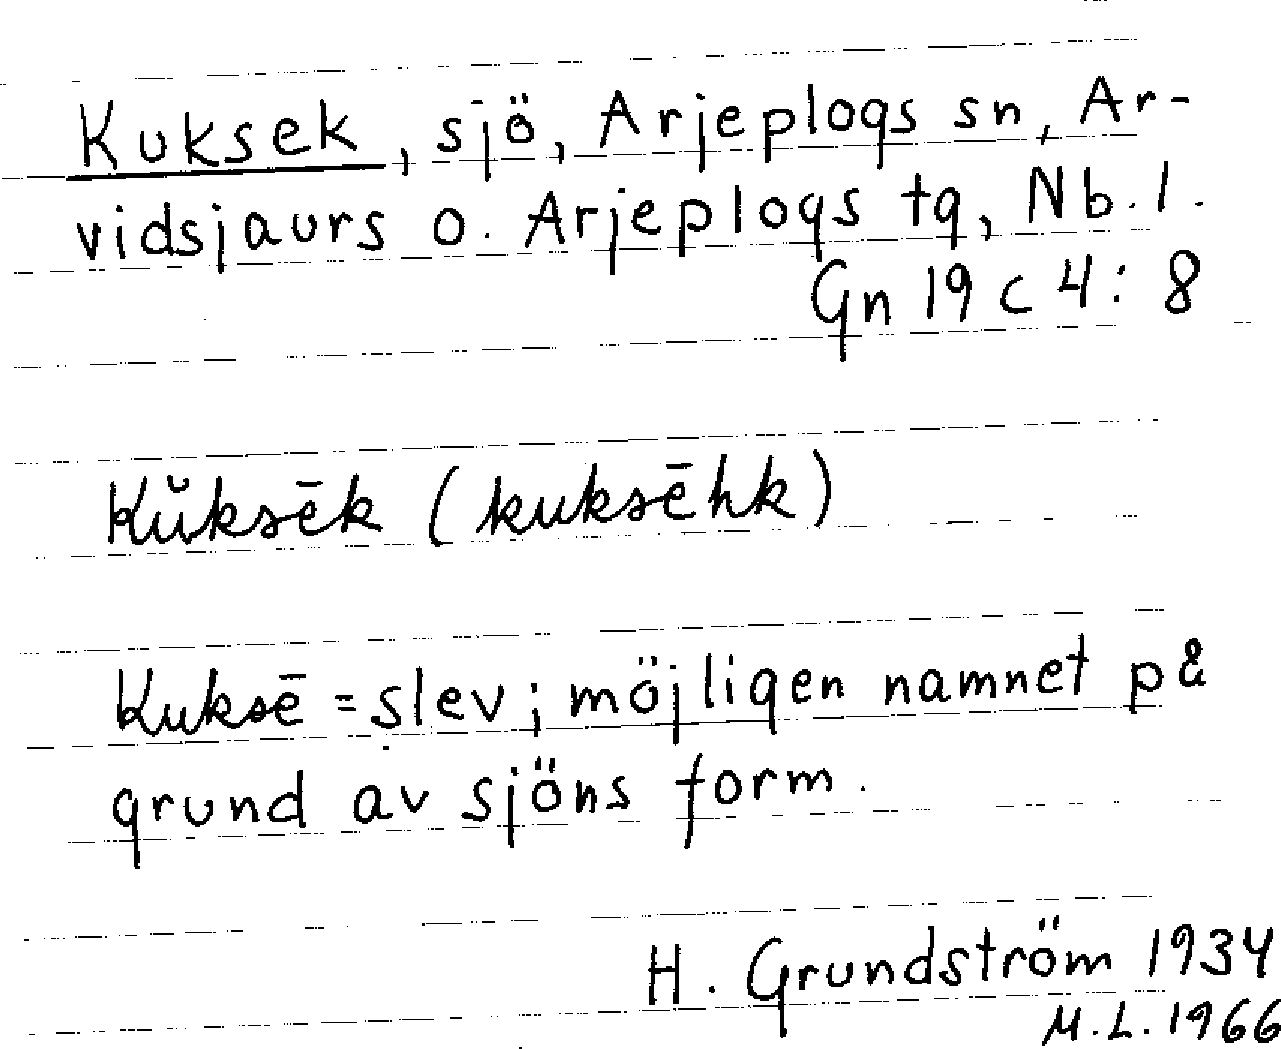 Kuksek, sjö, Arjeplogs sn, Ar-
vidsjaurs o. Arjeplogs tg, Nb. l.
Gn 19 c 4: 8
Kŭksēk (kuksēhk)
Kuksē = slev; möjligen namnet på
grund av sjöns form.
H. Grundström 1934
M.L. 1966